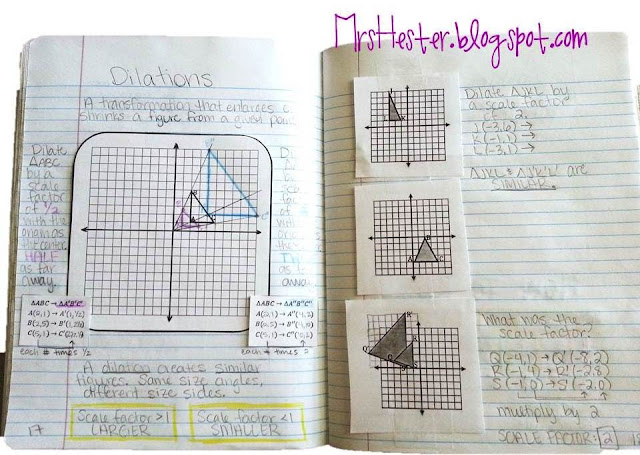 MrsHester.blogspot.com
Dilations
A transformation that enlarges
shrinks a figure from a given point
Dilate
△ABC
by a
scale
factor
of 1/2
with the
origin as
the center
HALF
as far
away.
△ABC → △A'B'C'
A(2,1) → A'(1,1/2)
each # times 1/2
△ABC → △A''B''C''
each # times 2
A dilation creates similar
figures. Same size angles,
different size sides.
Scale factor >1
LARGER
Scale factor <1
SMALLER
17
Dilate △JKL by
a scale factor
of 2.
J(-3,6) →
L(-3,1) →
△JKL & △J'K'L' are
SIMILAR.
A
B
C
What was the
scale factor?
Q(-4,1) → Q'(-8,2)
R(-1,4) → R'(-2,8)
S(-1,0) → S'(-2,0)
multiply by 2
SCALE FACTOR: 2